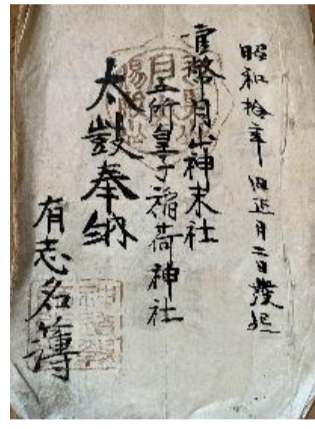 昭和拾年旧正月二日發起
官幣月山神末社
五所皇子稲荷神社
太鼓奉納
有志名簿